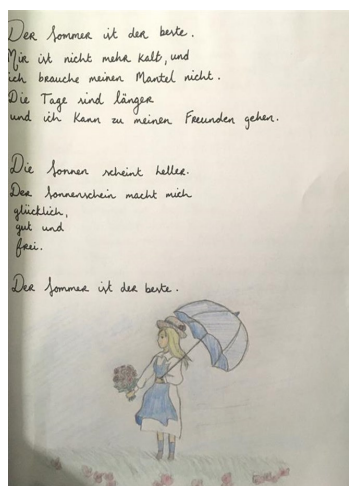 Der Sommer ist der beste.
Mir ist nicht mehr kalt, und
ich brauche meinen Mantel nicht.
Die Tage sind länger
und ich kann zu meinen Freunden gehen.
Die Sonnen scheint heller.
Der Sonnenschein macht mich
glücklich,
gut und
frei.
Der Sommer ist der beste.